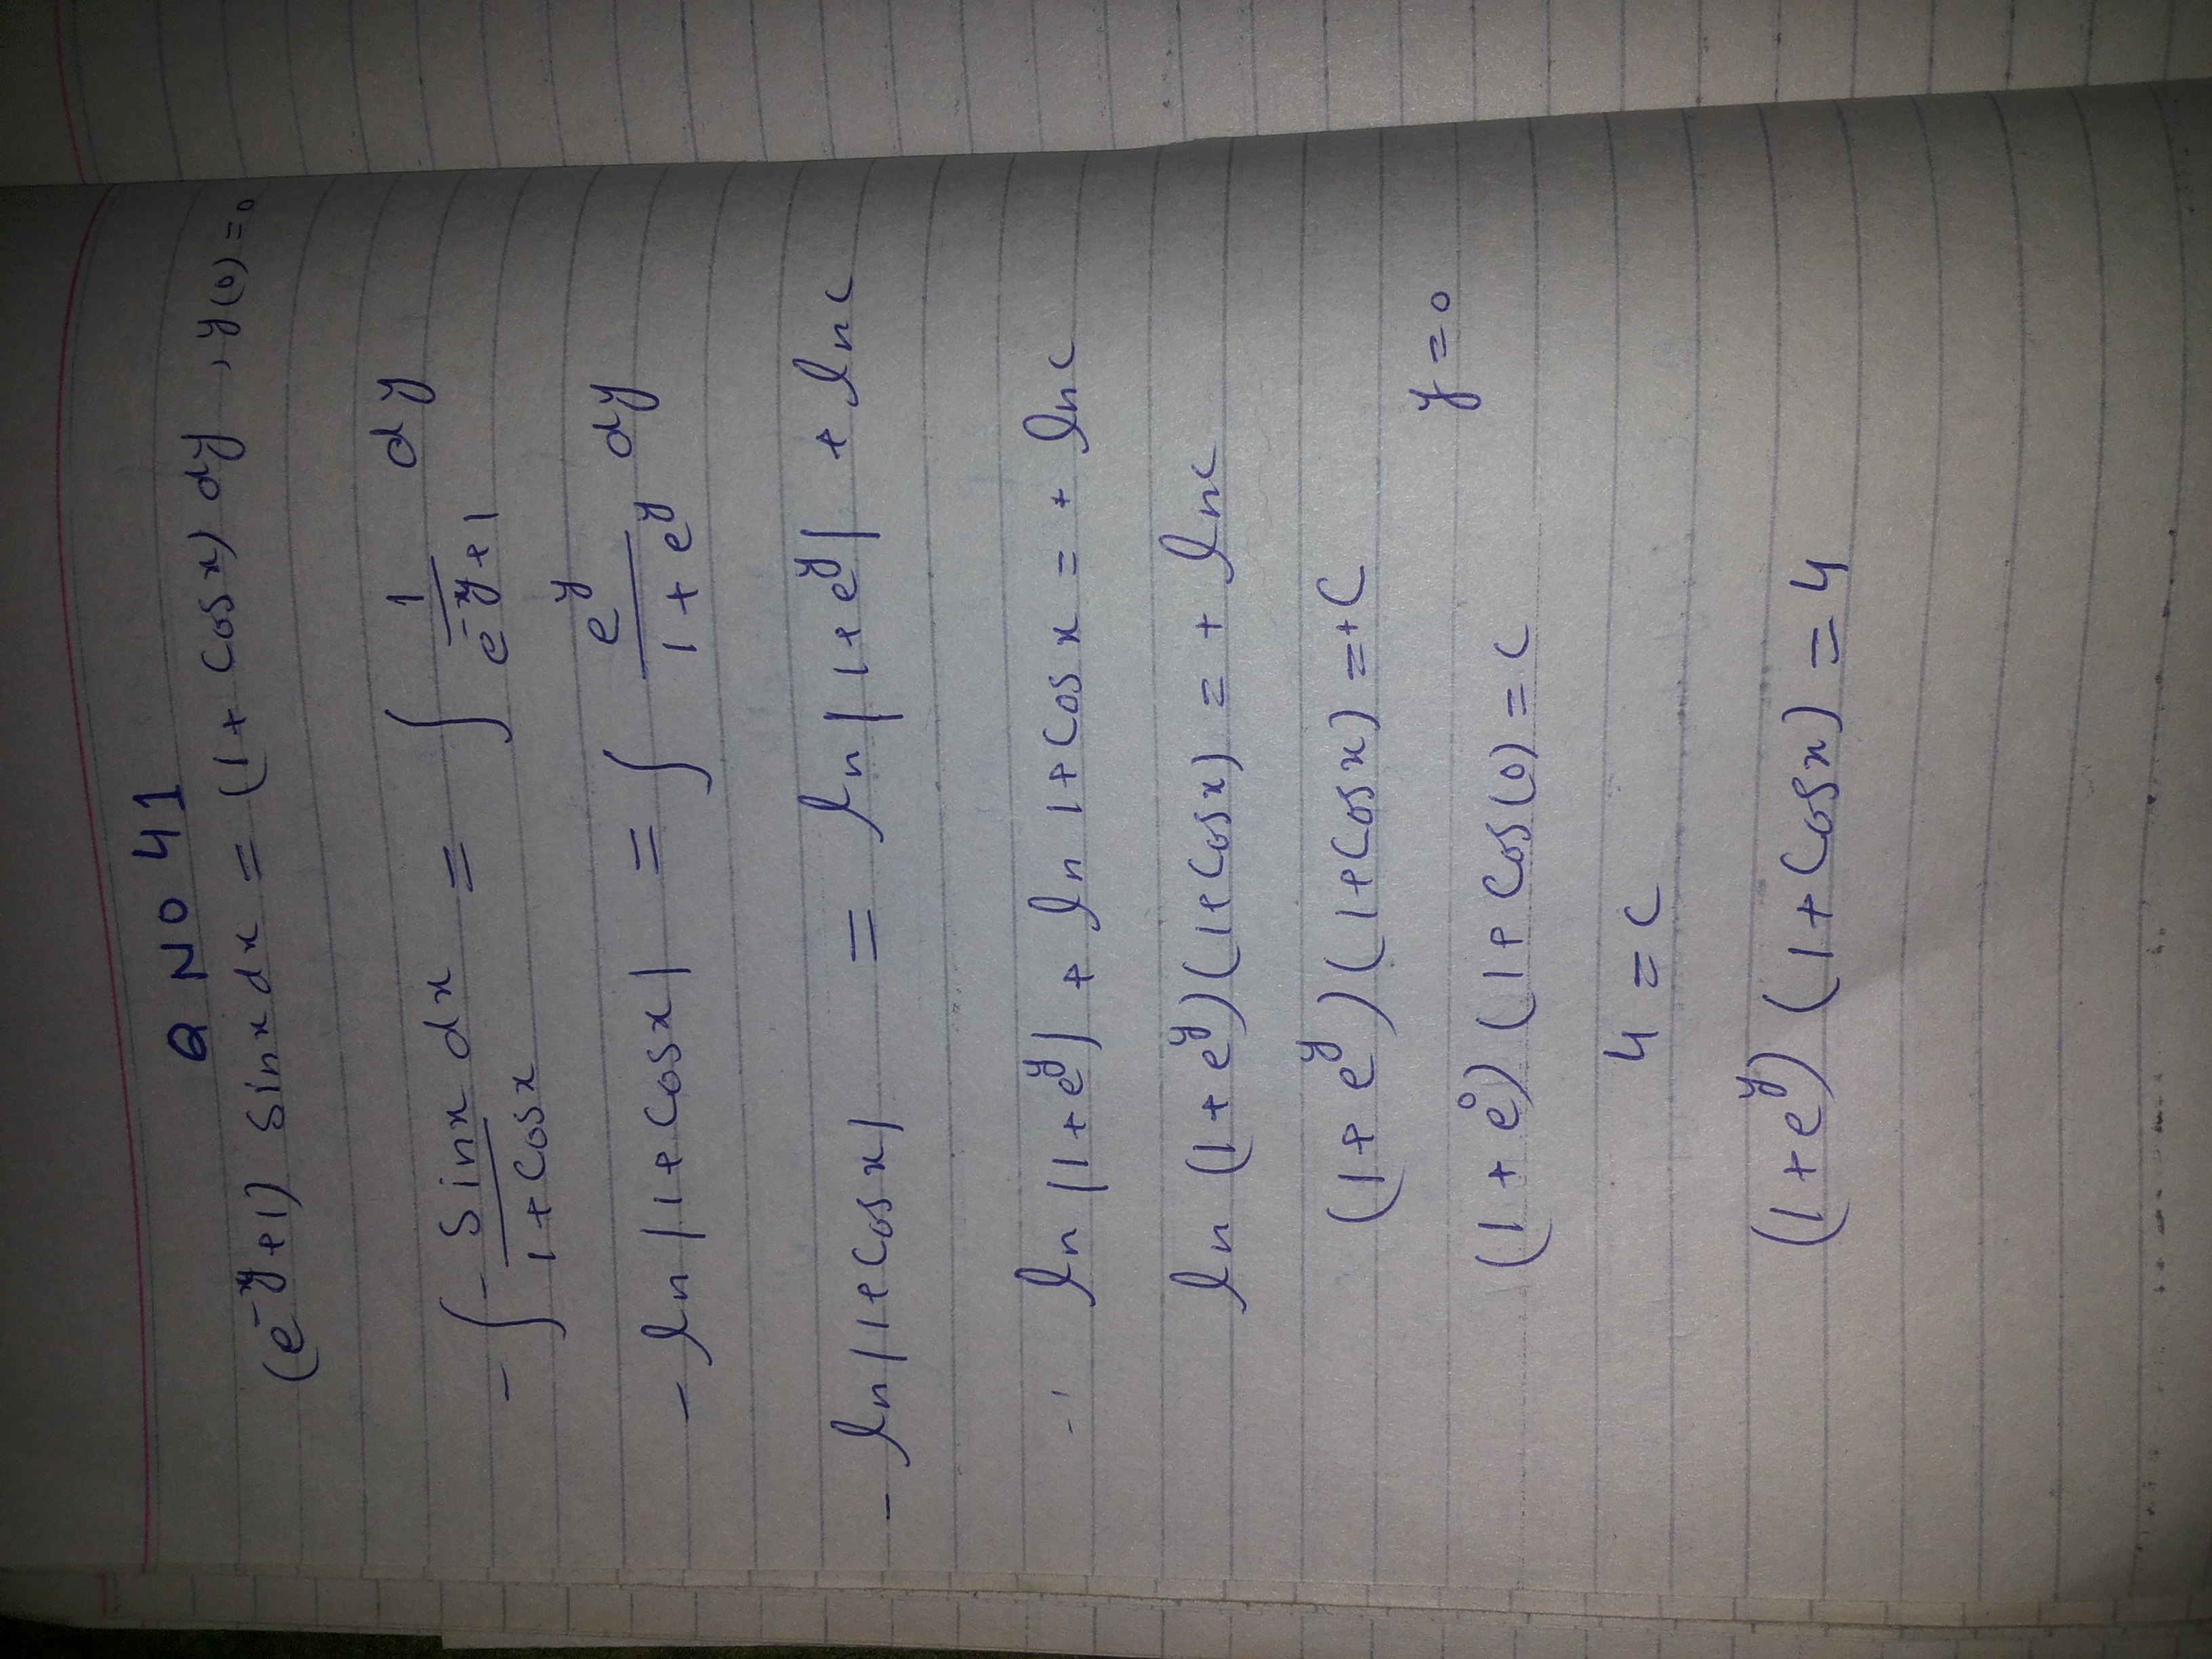 Q NO 41
(e^-y+1) Sinx dx = (1 + Cosx) dy , y(0)=0
- ∫ - Sinx dx / 1 + Cosx = ∫ 1 / e^-y+1 dy
- ln |1+Cosx| = ∫ e^y / 1 + e^y dy
- ln|1+Cosx| = ln|1+e^y| + lnc
ln |1+e^y| + ln 1+Cosx = + lnc
ln (1+e^y)(1+Cosx) = + lnc
(1+e^y)(1+Cosx) =+C
y=0
(1+e^0) (1+Cos(0) = C
4 = C
(1+e^y) (1+Cosx) = 4